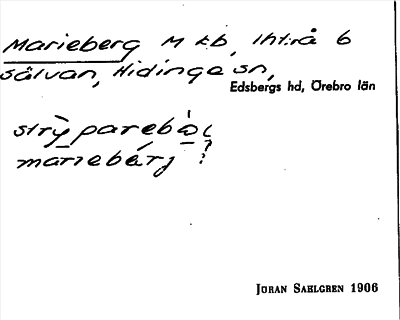 Marieberg M kb, Iht:rå 6
sälvan, Hidinge sn,
Edsbergs hd, Örebro län
marıebérj ?
JÖRAN SAHLGREN 1906